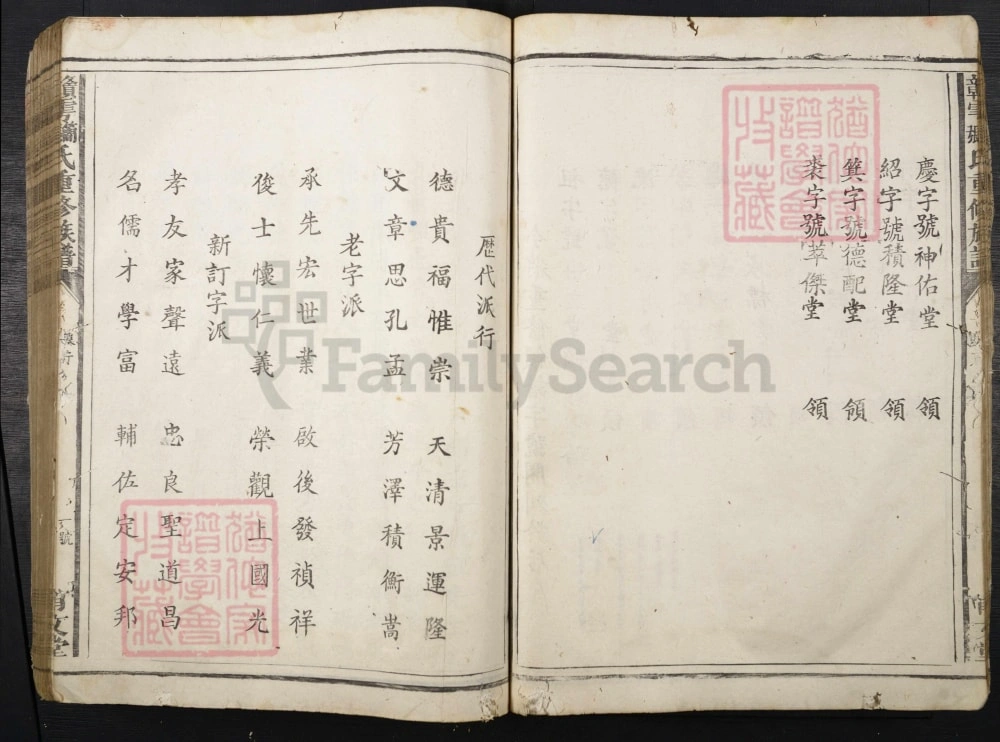 慶字號神佑堂 領
紹字號積隆堂 領
箕字號德配堂 領
裘字號萃傑堂 領
歷代派行
德貴福惟崇 天清景運隆
文章思孔孟 芳澤積衡嵩
老字派
承先宏世業 啟後發禎祥
俊士懷仁義 榮觀上國光
新訂字派
孝友家聲遠 忠良聖道昌
名儒才學富 輔佐定安邦
氏重修族譜
FamilySearch
譜學會
收藏
譜學會
收藏